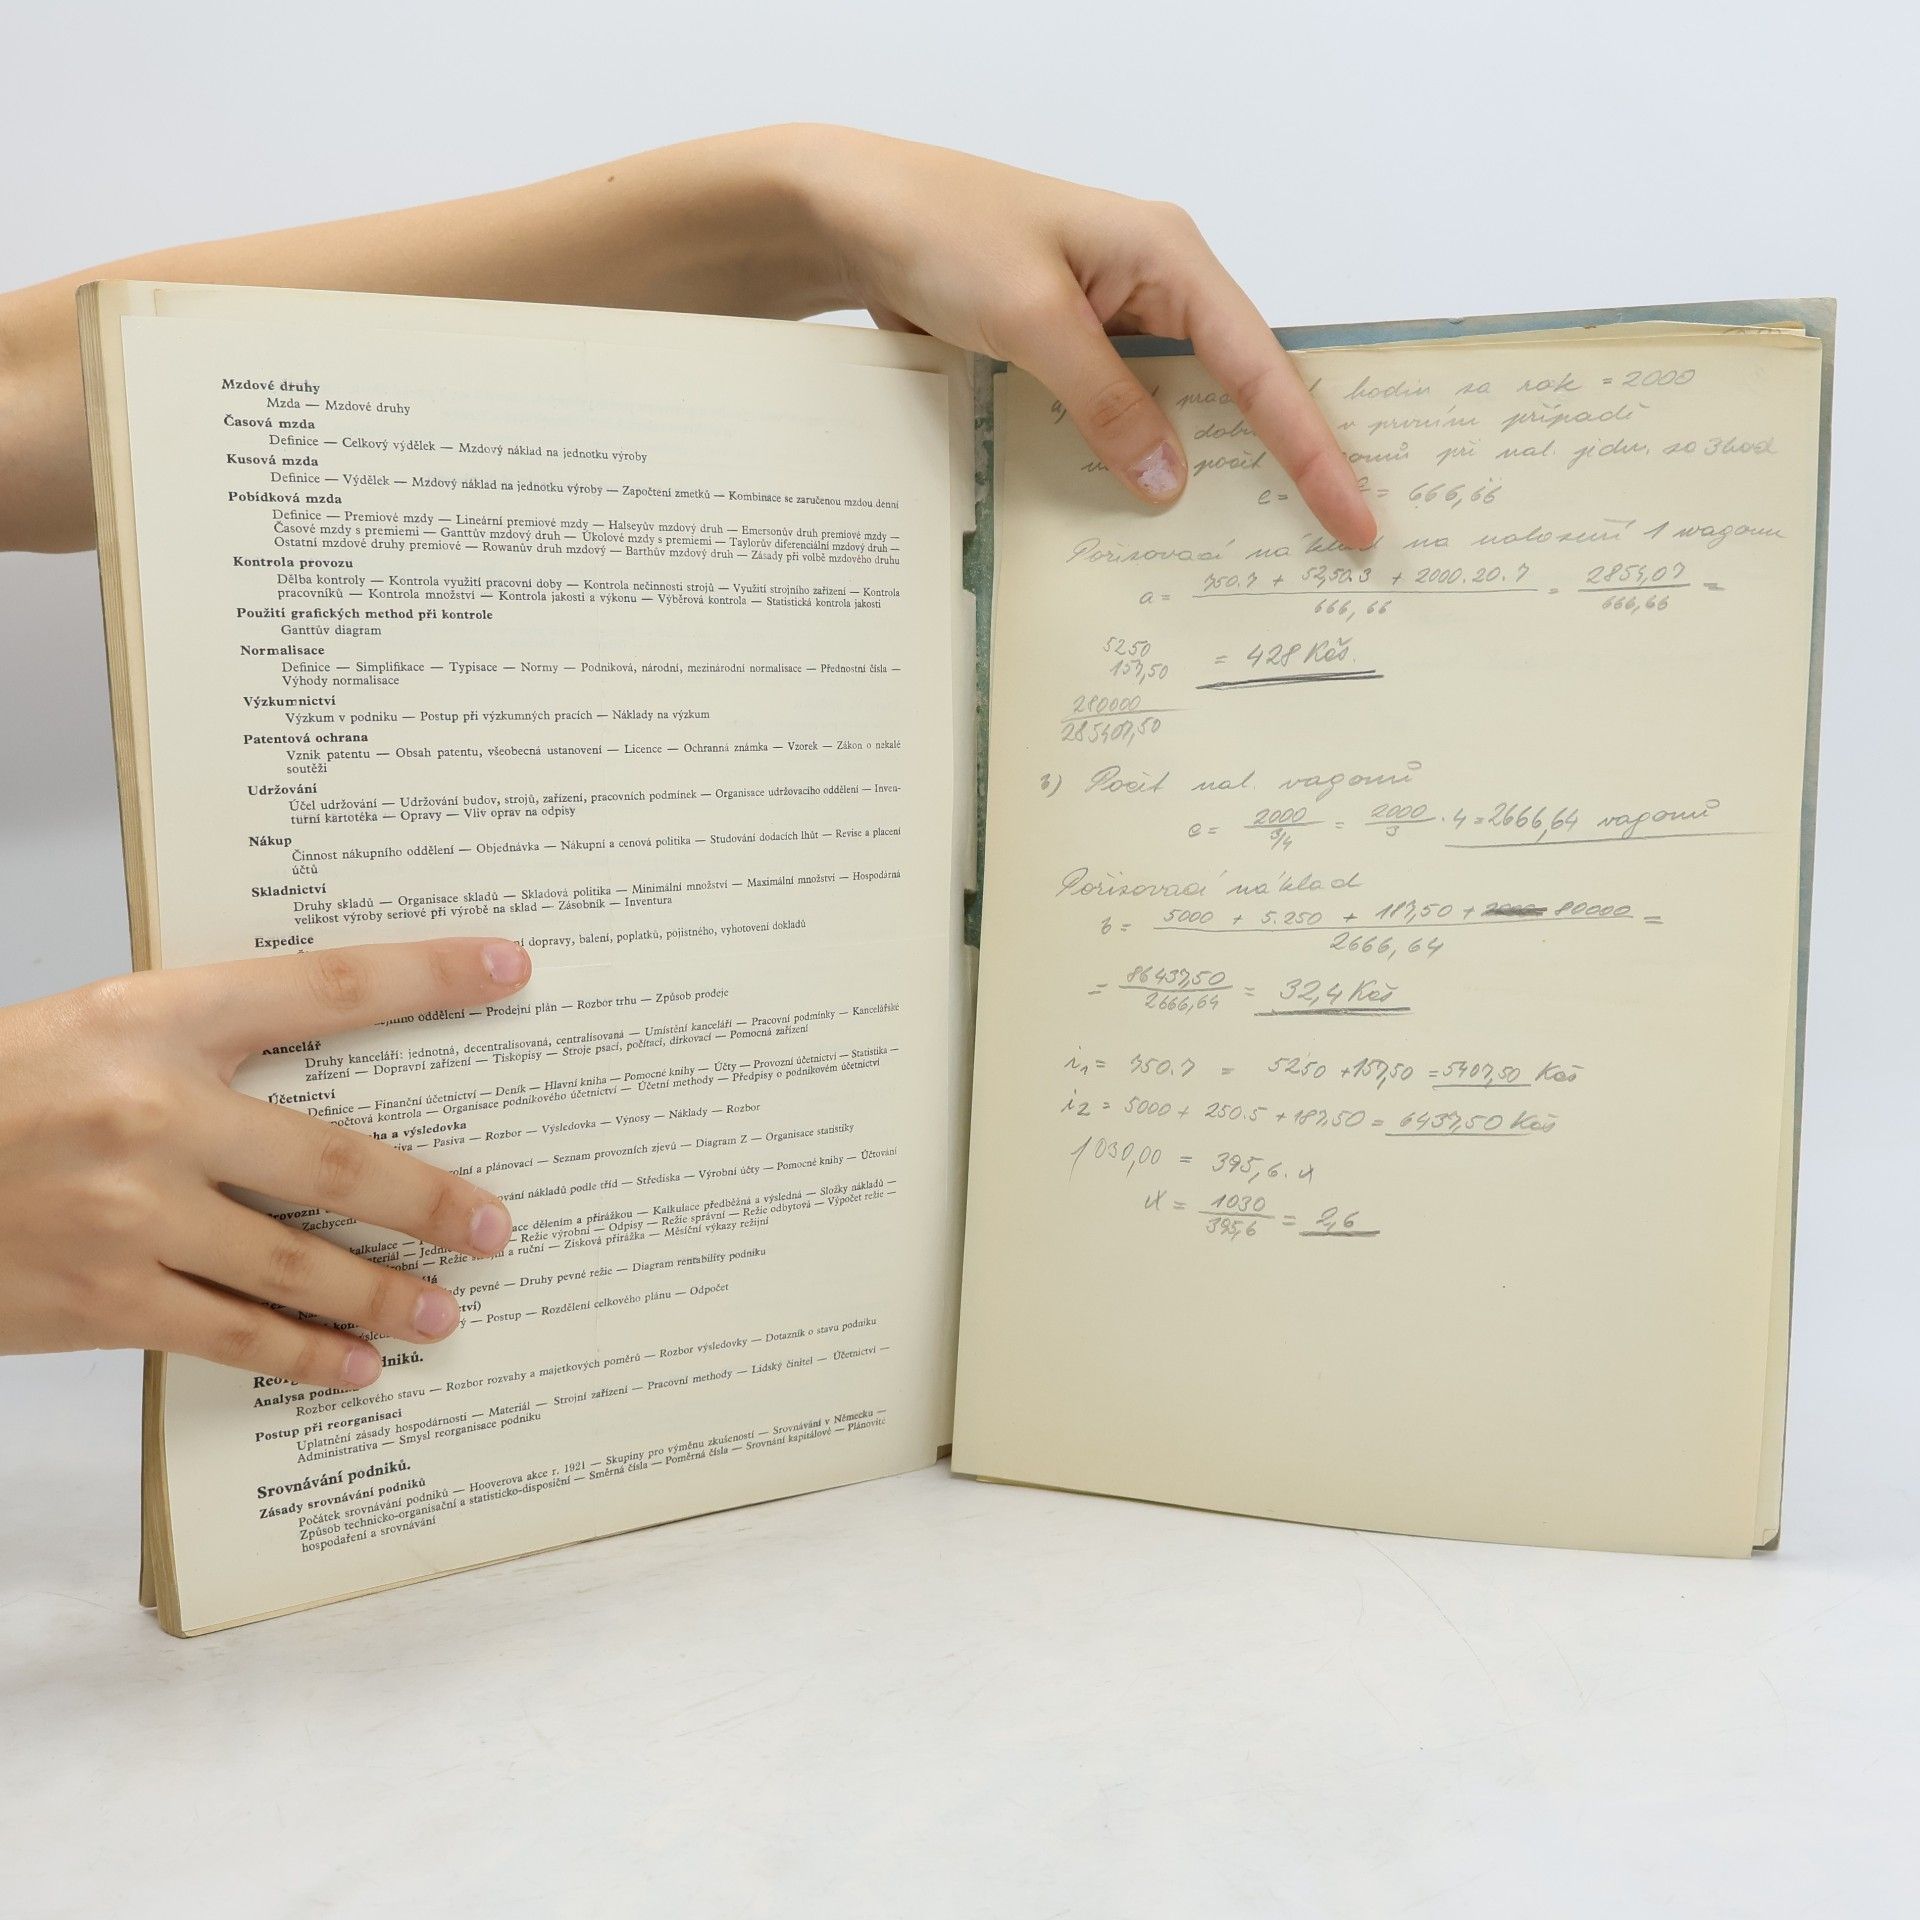 Mzdové druhy
Mzda — Mzdové druhy
Časová mzda
Definice — Celkový výdělek — Mzdový náklad na jednotku výroby
Kusová mzda
Definice — Výdělek — Mzdový náklad na jednotku výroby — Započtení zmetků — Kombinace se zaručenou mzdou denní
Pobídková mzda
Definice — Premiové mzdy — Lineární premiové mzdy — Halseyův mzdový druh — Emersonův druh premiové mzdy —
Časové mzdy s premiemi — Ganttův mzdový druh — Úkolové mzdy s premiemi — Taylorův diferenciální mzdový druh —
Ostatní mzdové druhy premiové — Rowanův druh mzdový — Barthův mzdový druh — Zásady při volbě mzdového druhu
Kontrola provozu
Dělba kontroly — Kontrola využití pracovní doby — Kontrola nečinnosti strojů — Využití strojního zařízení — Kontrola
pracovníků — Kontrola množství — Kontrola jakosti a výkonu — Výběrová kontrola — Statistická kontrola jakosti
Použití grafických method při kontrole
Ganttův diagram
Normalisace
Definice — Simplifikace — Typisace — Normy — Podniková, národní, mezinárodní normalisace — Přednostní čísla —
Výhody normalisace
Výzkumnictví
Výzkum v podniku — Postup při výzkumných pracích — Náklady na výzkum
Patentová ochrana
Vznik patentu — Obsah patentu, všeobecná ustanovení — Licence — Ochranná známka — Vzorek — Zákon o nekalé
soutěži
Udržování
Účel udržování — Udržování budov, strojů, zařízení, pracovních podmínek — Organisace udržovacího oddělení — Inven-
turní kartotéka — Opravy — Vliv oprav na odpisy
Nákup
Činnost nákupního oddělení — Objednávka — Nákupní a cenová politika — Studování dodacích lhůt — Revise a placení
účtů
Skladnictví
Druhy skladů — Organisace skladů — Skladová politika — Minimální množství — Maximální množství — Hospodárná
velikost výroby seriové při výrobě na sklad — Zásobník — Inventura
Expedice
dopravy, balení, poplatků, pojistného, vyhotovení dokladů
oddělení — Prodejní plán — Rozbor trhu — Způsob prodeje
Kancelář
Druhy kanceláří: jednotná, decentralisovaná, centralisovaná — Umístění kanceláří — Pracovní podmínky — Kancelářské
zařízení — Dopravní zařízení — Tiskopisy — Stroje psací, počítací, dírkovací — Pomocná zařízení
Účetnictví
Definice — Finanční účetnictví — Deník — Hlavní kniha — Pomocné knihy — Účty — Provozní účetnictví — Statistika —
počtová kontrola — Organisace podnikového účetnictví — Účetní methody — Předpisy o podnikovém účetnictví
a výsledovka
— Pasiva — Rozbor — Výsledovka — Výnosy — Náklady — Rozbor
a plánovací — Seznam provozních zjevů — Diagram Z — Organisace statistiky
nákladů podle tříd — Střediska — Výrobní účty — Pomocné knihy — Účtování
dělením a přirážkou — Kalkulace předběžná a výsledná — Složky nákladů —
— Režie výrobní — Odpisy — Režie správní — Režie odbytová — Výpočet režie —
a ruční — Zisková přirážka — Měsíční výkazy režijní
pevné — Druhy pevné režie — Diagram rentability podniku
— Postup — Rozdělení celkového plánu — Odpočet
Analysa
Rozbor celkového stavu — Rozbor rozvahy a majetkových poměrů — Rozbor výsledovky — Dotazník o stavu podniku
Postup při reorganisaci
Uplatnění zásady hospodárnosti — Materiál — Strojní zařízení — Pracovní methody — Lidský činitel — Účetnictví —
Administrativa — Smysl reorganisace podniku
Srovnávání podniků.
Zásady srovnávání podniků
Počátek srovnávání podniků — Hooverova akce r. 1921 — Skupiny pro výměnu zkušeností — Srovnávání v Německu —
Způsob technicko-organisační a statisticko-disposiční — Směrná čísla — Poměrná čísla — Srovnání kapitálové — Plánovité
hospodaření a srovnávání
a) hodin za rok = 2000
v prvním případě
počet při nal. jedn. za 3 hod
c= = 666,66
Pořizovací náklad na naložení 1 wagonu
a = 750.7 + 52,50.3 + 2000.20.7 / 666,66 = 2854,07 / 666,66 =
5250
157,50
= 428 Kčs.
280000
285407,50
b) Počet nal. vagonů
c= 2000 / 3/4 = 2000 / 3 . 4 = 2666,64 vagonů
Pořizovací náklad
b = 5000 + 5.250 + 187,50 + 80000 / 2666,64 =
= 86437,50 / 2666,64 = 32,4 Kčs
i1 = 750.7 = 5250 + 157,50 = 5407,50 Kčs
i2 = 5000 + 250.5 + 187,50 = 6437,50 Kčs
1030,00 = 395,6. x
x = 1030 / 395,6 = 2,6